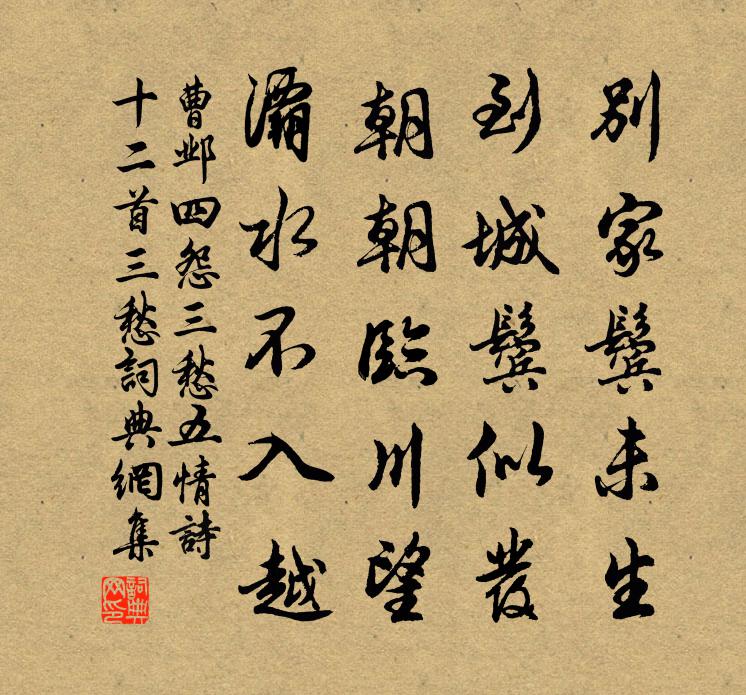 別家鬢未生
到城鬢似發
朝朝臨川望
灞水不入越
曹邺四怨三愁五情詩
十二首三愁詞典網集
詞典网印